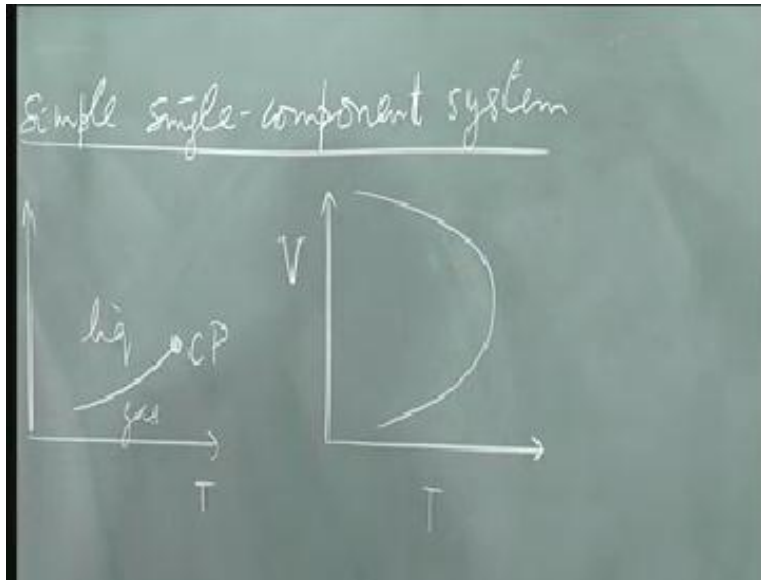 Simple single-component system
V
liq
CP
gas
T
T